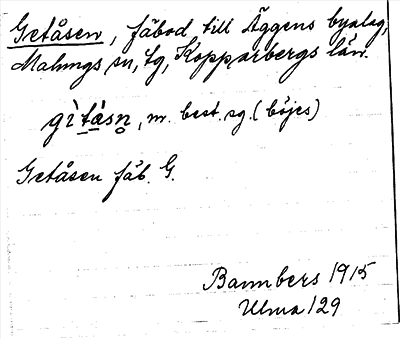 Getåsen, fäbod till Äggens byalag,
Malungs sn, tg, Kopparbergs län.
gìtåsn̥, m. best. sg. (böjes)
Getåsen fäb. G.
Bannbers 1915
Ulma 129